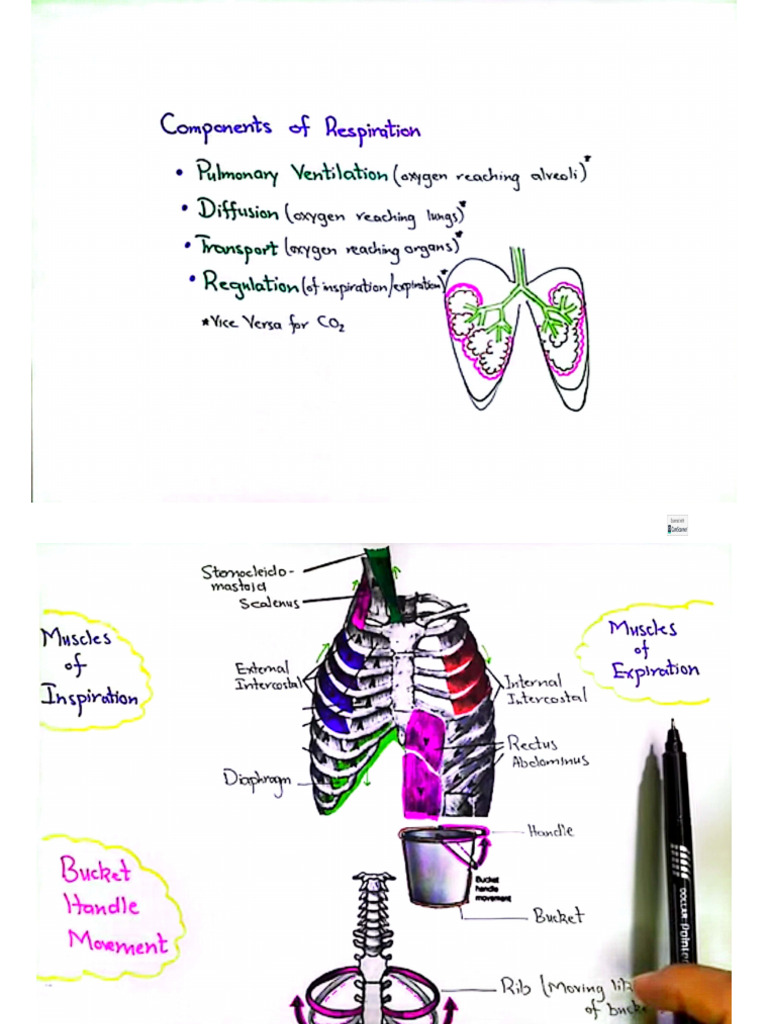 Components of Respiration
• Pulmonary Ventilation (oxygen reaching alveoli)*
• Diffusion (oxygen reaching lungs)*
• Transport (oxygen reaching organs)*
• Regulation (of inspiration/expiration)*
*Vice Versa for CO2
CamScanner
Muscles
of
Inspiration
Stenocleido-
mastoid
Scalenus
External
Intercostal
Diaphragm
Muscles
of
Expiration
Internal
Intercostal
Rectus
Abelominus
Bucket
Handle
Movement
Handle
Bucket
handle
movement
Bucket
Rib (Moving
of
DOLLAR Pointer